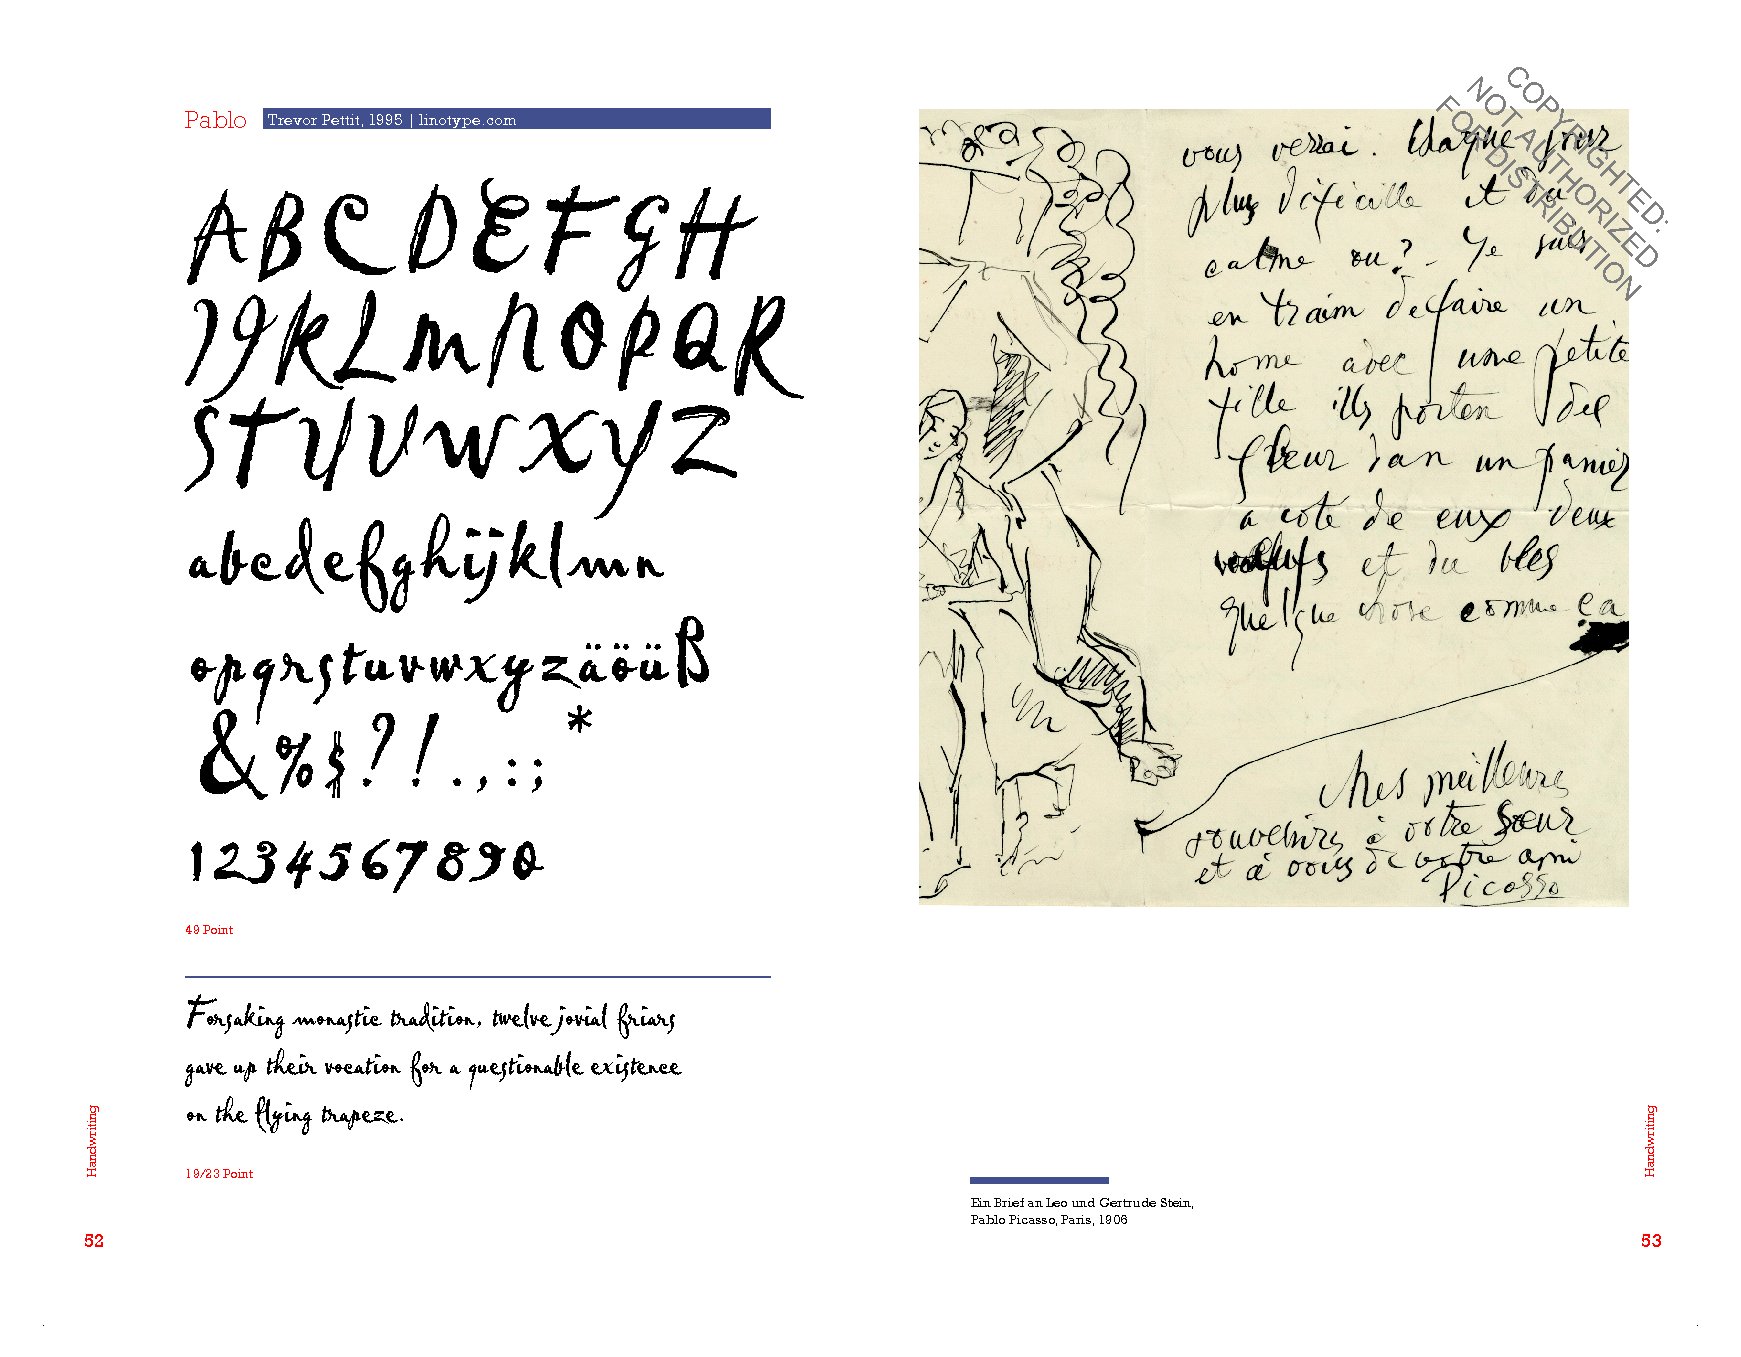 Pablo Trevor Pettit, 1995 | linotype.com
A B C D E F G H
I J K L M N O P Q R
S T U V W X Y Z
a b c d e f g h i j k l m n
o p q r s t u v w x y z ä ö ü ß
& % $ ? ! . , : ; *
1 2 3 4 5 6 7 8 9 0
49 Point
Forsaking monastic tradition, twelve jovial friars
gave up their vocation for a questionable existence
on the flying trapeze.
19/23 Point
Handwriting
52
COPYRIGHTED:
NOT AUTHORIZED
FOR DISTRIBUTION
vous verrai. Chaque jour
plus dificille et du
calme ou? - Je suis
en traim de faire un
home avec une petite
fille ills porten des
fleur dan un panier
a coté de eux deux
et du bles
quelque chose comme ça
Mes meilleures
souvenirs à votre Sœur
et à vous de votre ami
Picasso
Ein Brief an Leo und Gertrude Stein,
Pablo Picasso, Paris, 1906
Handwriting
53